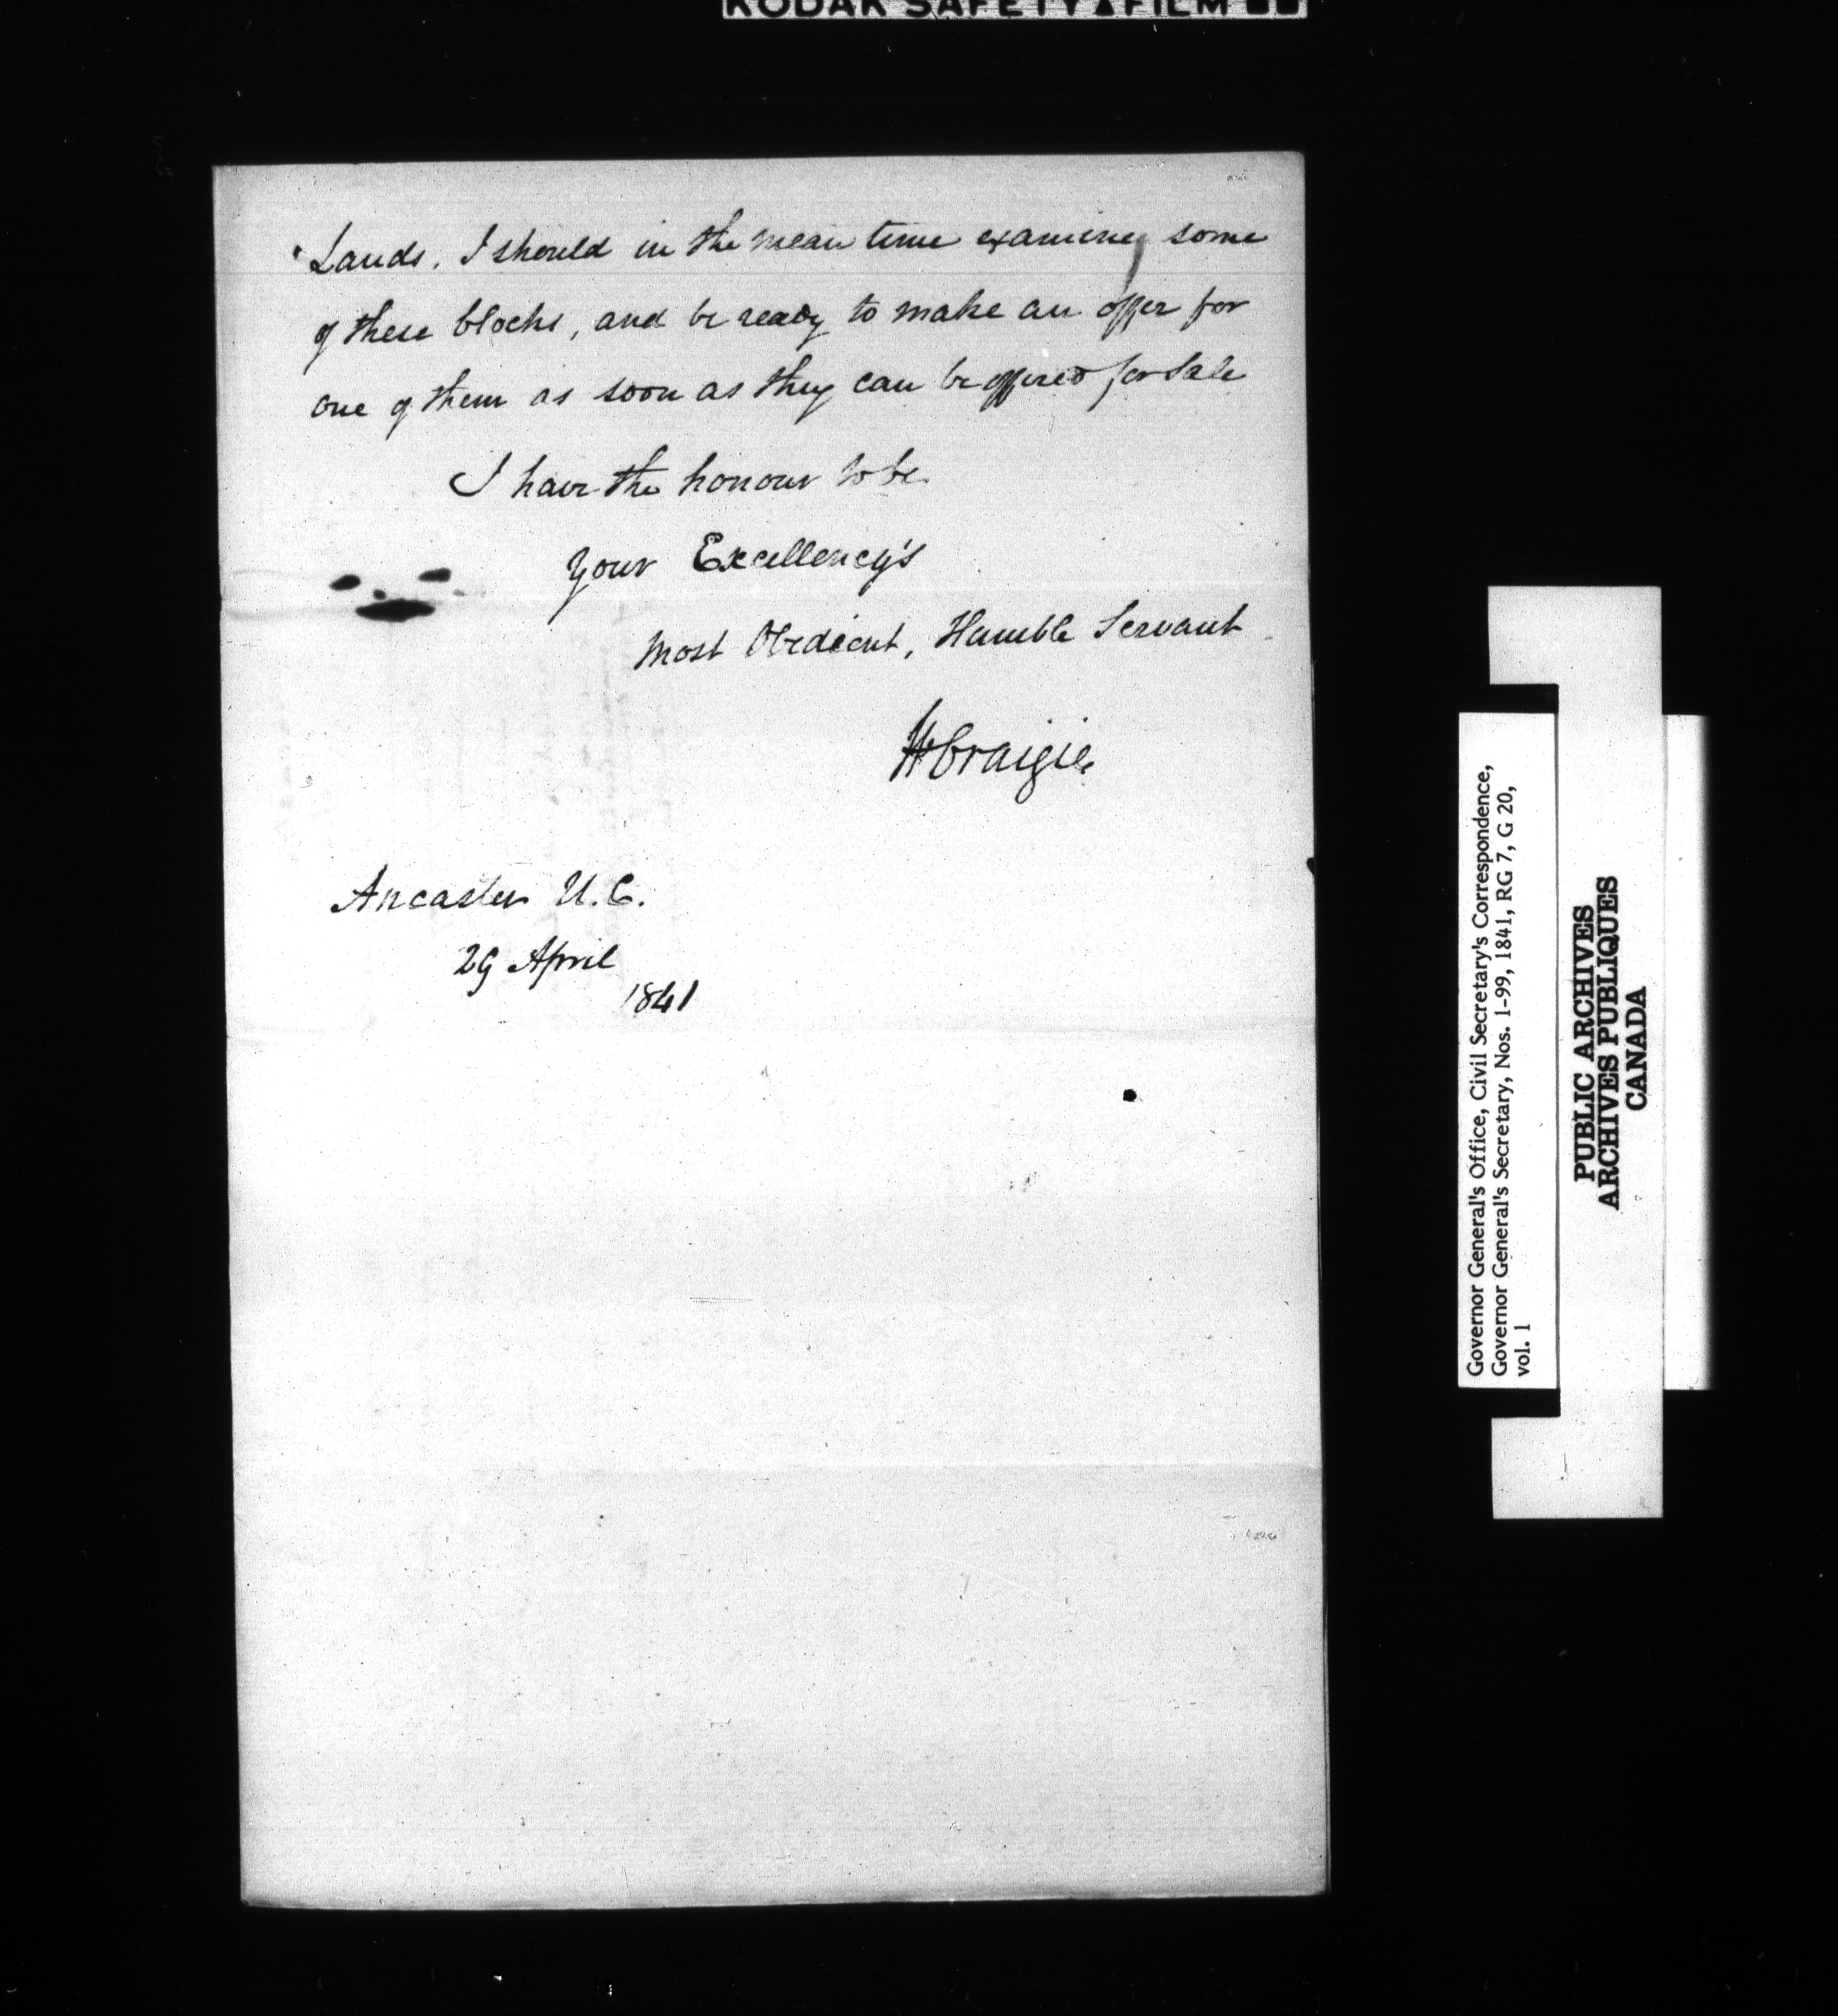 KODAK SAFETY FILM
Lands. I should in the mean time examine some
of these blocks, and be ready to make an offer for
one of them as soon as they can be offered for sale
I have the honour to be
Your Excellency's
Most Obedient, Humble Servant
W Craigie
Ancaster U.C.
29 April
1841
Governor General's Office, Civil Secretary's Correspondence,
Governor General's Secretary, Nos. 1-99, 1841, RG 7, G 20,
vol. 1
PUBLIC ARCHIVES
ARCHIVES PUBLIQUES
CANADA